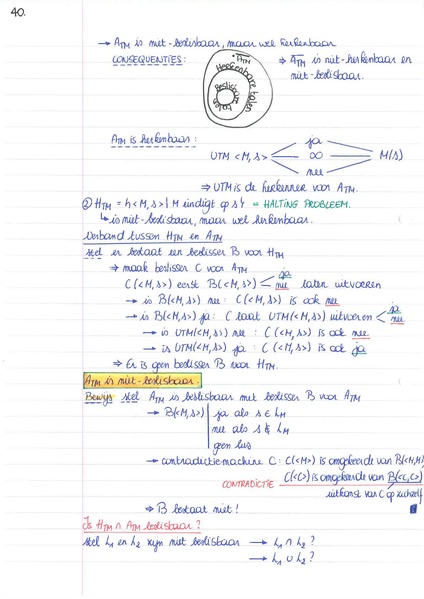 40.
→ A_TM is niet-beslisbaar, maar wel herkenbaar
CONSEQUENTIES:
A̅_TM
Herkenbare talen
Beslisbare talen
⇒ A̅_TM is niet-herkenbaar en
niet-beslisbaar.
A_TM is herkenbaar:
ja
UTM <M,s> ∞ M(s)
nee
⇒ UTM is de herkenner voor A_TM.
② H_TM = {<M,s> | M eindigt op s} = HALTING PROBLEEM.
↳ is niet-beslisbaar, maar wel herkenbaar.
Verband tussen H_TM en A_TM
stel er bestaat een beslisser B voor H_TM
⇒ maak beslisser C voor A_TM
C(<M,s>) eerst B(<M,s>) < ja nee laten uitvoeren
→ is B(<M,s>) nee : C(<M,s>) is ook nee
→ is B(<M,s>) ja : C laat UTM(<M,s>) uitvoeren < ja nee
→ is UTM(<M,s>) nee : C(<M,s>) is ook nee
→ is UTM(<M,s>) ja : C(<M,s>) is ook ja
⇒ Er is geen beslisser B voor H_TM.
A_TM is niet-beslisbaar.
Bewijs stel A_TM is beslisbaar met beslisser B voor A_TM
→ B(<M,s>) | ja als s ∈ L_M
nee als s ∉ L_M
geen lus
→ contradictiemachine C : C(<M>) is omgekeerde van B(<M,M>)
C(<C>) is omgekeerde van B(<C,C>)
CONTRADICTIE
uitkomst van C op zichzelf
⇒ B bestaat niet!
Is H_TM ∩ A_TM beslisbaar?
stel L₁ en L₂ zijn niet beslisbaar → L₁ ∩ L₂ ?
→ L₁ ∪ L₂ ?